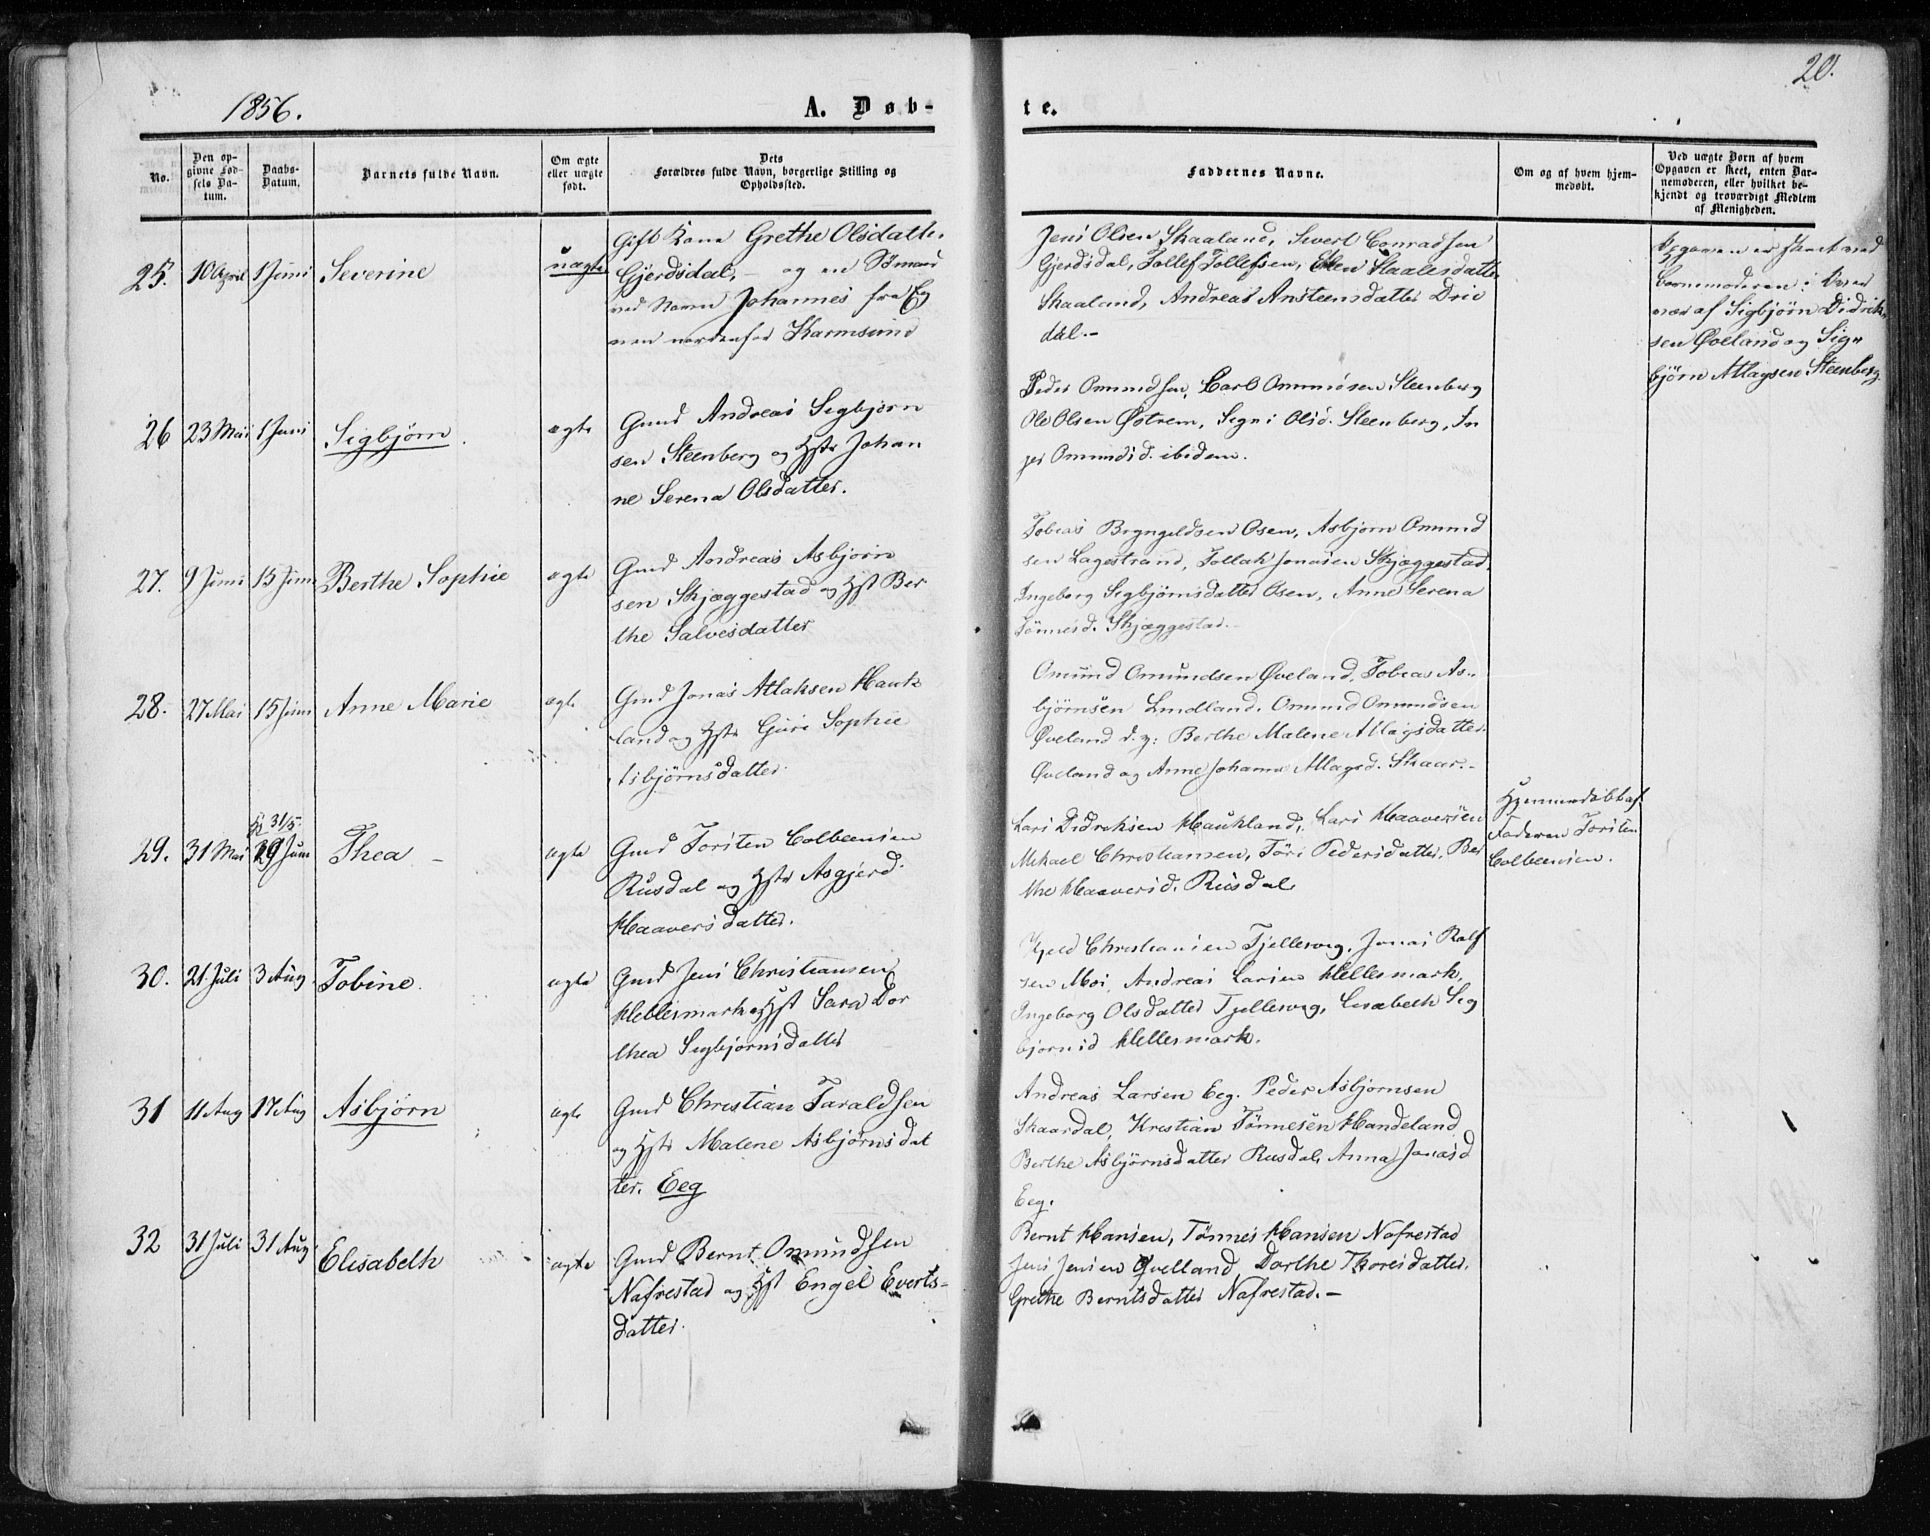 20.
1856.
A. Døb-
te.
No.
Den op-
givne Fød-
sels Da-
tum.
Daabs-
Datum.
Barnets fulde Navn.
Om ægte
eller uægte
født.
Dets
Forældres fulde Navn, borgerlige Stilling og
Opholdssted.
Faddernes Navne.
Om og af hvem hjem-
medøbt.
Ved uægte Børn af hvem
Opgaven er skeet, enten Bar-
nemoderen, eller hvilket be-
kjendt og troværdigt Medlem
af Menigheden.
25. 10 April 1 Juni Severine uægte
Gift Kone Grethe Olsdatter
Gjerdsdal, - og en Sömand
ved Navn Johannes fra Eg
nen nordenfor Karmsund
Jens Olsen Skaaland, Sivert Conradsen
Gjerdsdal, Tollef Tollefsen, Elen Staalesdatter
Skaaland, Andrea Ansteensdatter Drie
dal.-
Opgaven er skeet ved
Barnemoderen i Over
vær af Sigbjørn Didrik-
sen Øveland og Sig-
bjørn Atlagsen Steenberg
26 23 Mai 1 Juni Sigbjørn. ægte
Gmd Andreas Sigbjørn
sen Steenberg og Hstr Johan
ne Serena Olsdatter.
Peder Omundsen, Carl Omundsen Steenberg
Ole Olsen Østrem, Signi Olsd. Steenberg, In
ger Omundsd. ibidem.
27. 9 Juni 15 Juni Berthe Sophie ægte
Gmd Andreas Asbjørn
sen Skjæggestad og Hst Ber
the Salvesdatter
Tobias Bryngeldsen Osen, Asbjørn Omund
sen Lagestrand, Tollak Jonasen Skjæggestad,
Ingeborg Sigbjørnsdatter Osen, Anne Serena
Tönnesd. Skjæggestad.-
28. 27 Mai 15 Juni Anne Marie ægte
Gmd Jonas Atlaksen Hauk
land og Hstr Guri Sophie
Asbjørnsdatter.
Omund Omundsen Øveland, Tobias As-
bjørnsen Lindland, Omund Omundsen
Øveland d. y: Berthe Malene Atlagsdatter
Øveland og Anne Johanne Atlagsd. Skaar.-
29. 31 Mai 31/5. 29 Juni Thea - ægte
Gmd Torsten Colbeensen
Rusdal og Hstr Asgjerd
Haaversdatter.
Lars Didriksen Haukland, Lars Haaversen
Mikael Christiansen, Töri Pedersdatter, Ber
the Haaversd. Rusdal.
Hjemmedøbt af
Faderen Torsten
Colbeensen.
30. 21 Juli 3 Aug Tobine. ægte
Gmd Jens Christiansen
Hellesmark og Hst Sara Dor
thea Sigbjørnsdatter
Kjeld Christiansen Tjellesvig, Jonas Rolf
sen Moi, Andreas Larsen Hellesmark,
Ingeborg Olsdatter Tjellesvig, Lisabeth Sig
bjørnsd Hellesmark.
31 11 Aug 17 Aug Asbjørn ægte
Gmd Christian Taraldsen
og Hstr Malene Asbjørnsdat
ter. Eeg
Andreas Larsen Eeg. Peder Asbjørnsen
Skaardal, Kristian Tønnesen Handeland
Berthe Asbjørnsdatter Rusdal, Anna Jonasd
Eeg.
32 31 Juli 31 Aug. Elisabeth ægte
Gmd Bernt Omundsen
Nafrestad og Hst Engel Everts-
datter.
Bernt Hansen, Tönnes Hansen Nafrestad
Jens Jensen Qvelland, Dorthe Thoresdatter,
Grethe Berntsdatter Nafrestad.-